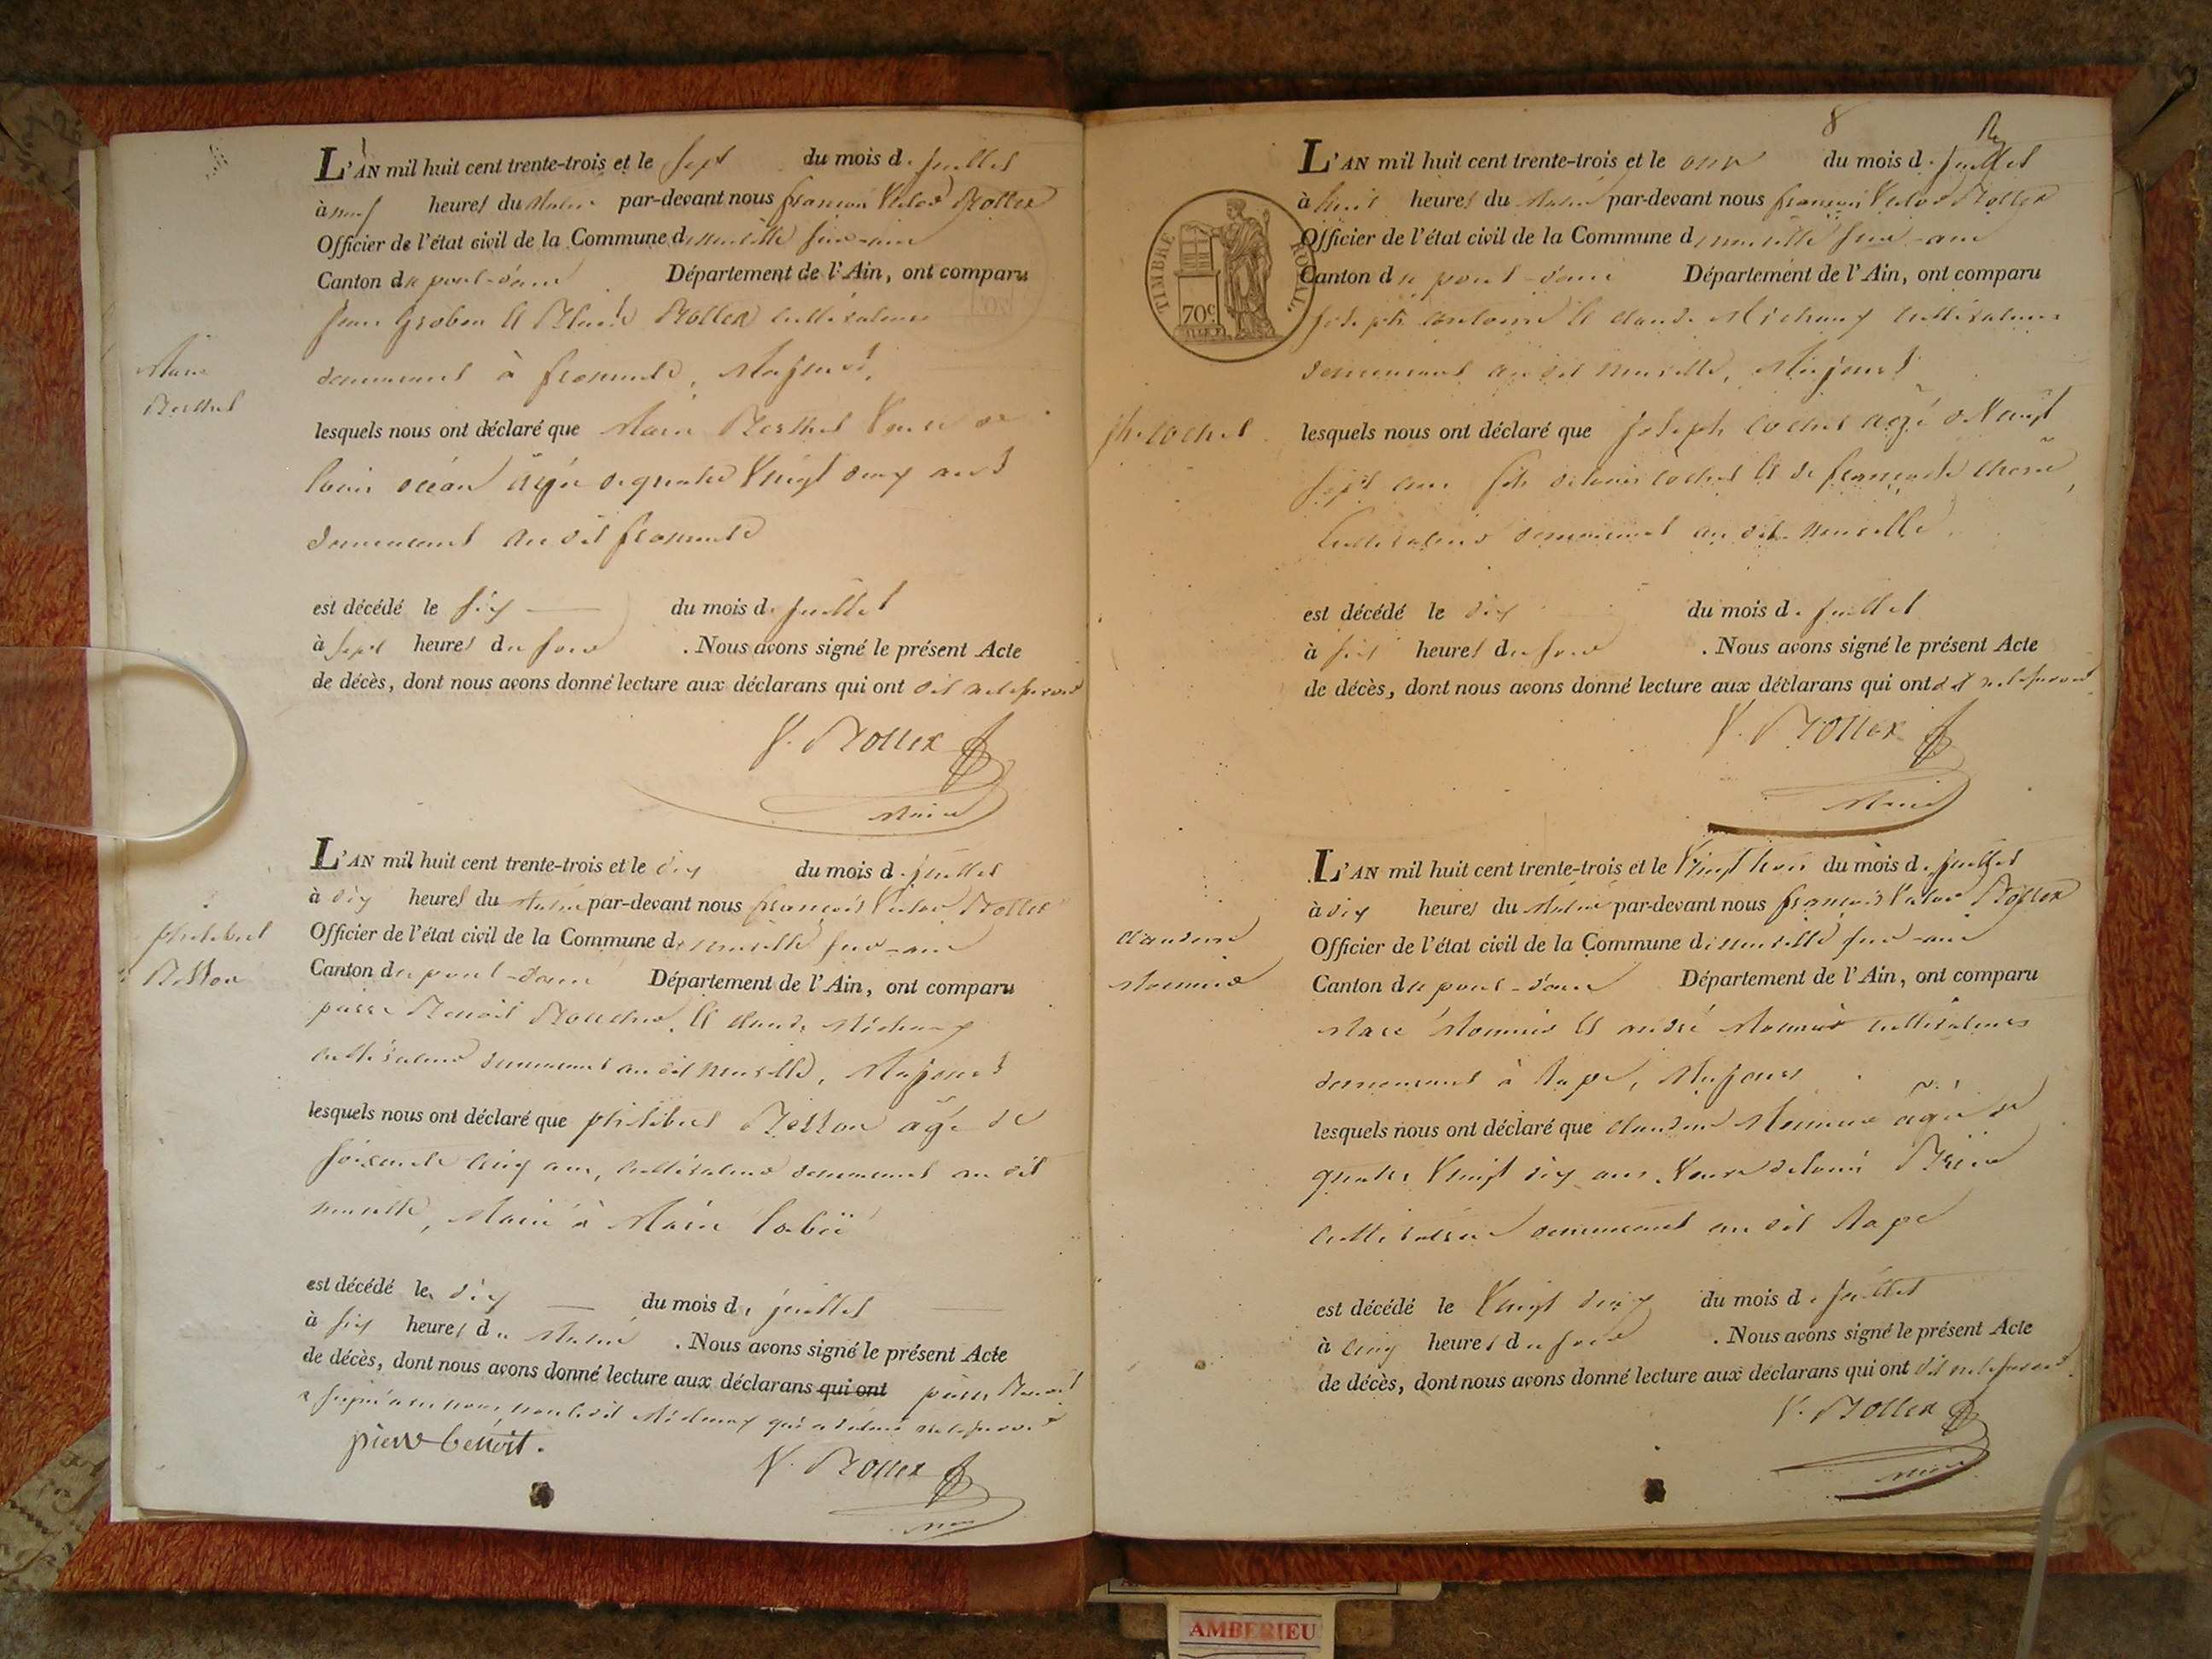 L'AN mil huit cent trente-trois et le sept du mois de juillet
à neuf heures du matin par-devant nous françois Victor Bollex
Officier de l'état civil de la Commune de neuville sur-ain
Canton du pont-d'ain Département de l'Ain, ont comparu
jean et Bollex cultivateurs
demeurant à fromente, Majeurs,
Marie
Berthet
lesquels nous ont déclaré que Marie Berthet Veuve de
louis âgée de quatre Vingt deux ans
demeurant au dit fromente
est décédé le six du mois de juillet
à sept heures du soir . Nous avons signé le présent Acte
de décès, dont nous avons donné lecture aux déclarans qui ont dit ne le savoir
V. Bollex
Maire
L'AN mil huit cent trente-trois et le dix du mois de juillet
à dix heures du matin par-devant nous françois Victor Bollex
Officier de l'état civil de la Commune de neuville sur-ain
philibert
Canton du pont-d'ain Département de l'Ain, ont comparu
pierre Benoit et claude Michaux
cultivateurs demeurant au dit neuville, Majeurs
lesquels nous ont déclaré que philibert âgé de
soixante cinq ans, cultivateur demeurant au dit
neuville, Marié à Marie
est décédé le dix du mois de juillet
à six heures du matin . Nous avons signé le présent Acte
de décès, dont nous avons donné lecture aux déclarans qui ont pierre Benoit
a signé avec nous, non le dit Michaux qui a déclaré ne le savoir
pierre benoit.
V. Bollex
Maire
8
L'AN mil huit cent trente-trois et le onze du mois de juillet
à huit heures du matin par-devant nous françois Victor Bollex
Officier de l'état civil de la Commune de neuville sur-ain
TIMBRE ROYAL
70c
Canton du pont-d'ain Département de l'Ain, ont comparu
joseph et claude Michaux cultivateurs
demeurant au dit neuville, Majeurs
jh. cochet
lesquels nous ont déclaré que joseph cochet agé de Vingt
sept ans fils de louis cochet et de françoise
cultivateur demeurant au dit neuville.
est décédé le dix du mois de juillet
à six heures du soir . Nous avons signé le présent Acte
de décès, dont nous avons donné lecture aux déclarans qui ont dit ne le savoir
V. Bollex
Maire
L'AN mil huit cent trente-trois et le Vingt trois du mois de juillet
à dix heures du matin par-devant nous françois Victor Bollex
claudine
Monnier
Officier de l'état civil de la Commune de neuville sur-ain
Canton du pont-d'ain Département de l'Ain, ont comparu
Marc Monnier et andré Monnier cultivateurs
demeurant à Rape, Majeurs
lesquels nous ont déclaré que claudine Monnier âgée de
quatre Vingt dix ans Veuve de louis
cultivatrice demeurant au dit Rape
est décédé le Vingt deux du mois de juillet
à cinq heures du soir . Nous avons signé le présent Acte
de décès, dont nous avons donné lecture aux déclarans qui ont dit ne le savoir
V. Bollex
Maire
AMBERIEU